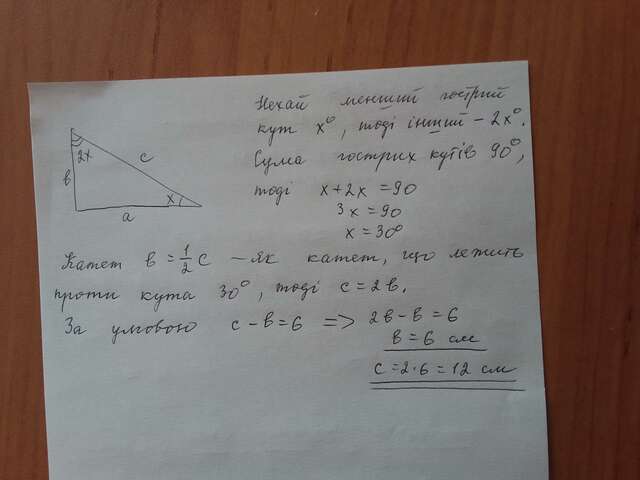 Нехай менший гострий
кут x°, тоді інший – 2x°.
Сума гострих кутів 90°,
тоді x+2x=90
3x=90
x=30°
2x
c
в
x
a
Катет в = 1/2 c – як катет, що лежить
проти кута 30°, тоді c=2в.
За умовою c–в=6 => 2в–в=6
в=6 см
c=2·6=12 см